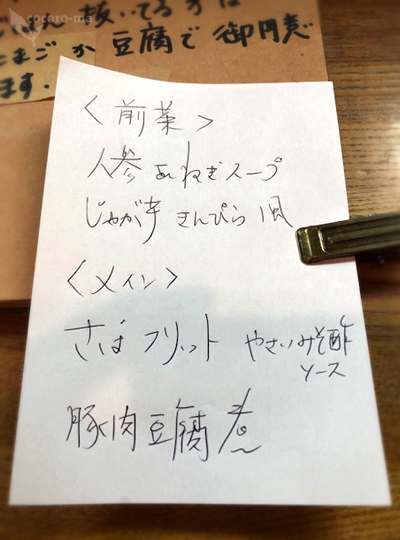 cocoro-ma
抜いてる方は
たまごか豆腐で御用意
ます.
<前菜>
人参 ねぎスープ
じゃが芋 きんぴら風
<メイン>
さば フリット やさいみそ酢
ソース
豚肉豆腐煮